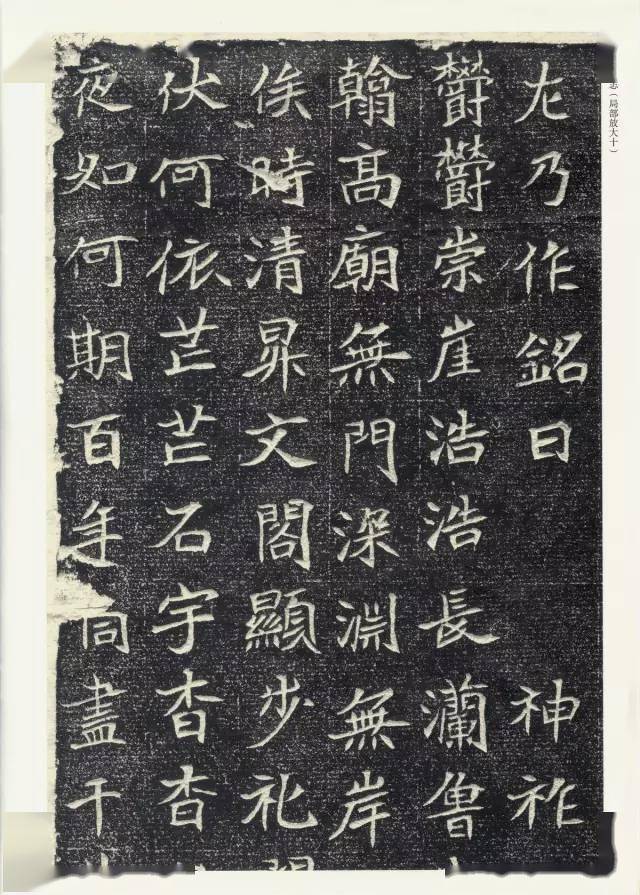 志（局部放大十）
乃作銘曰 神祚
欝欝崇崖浩浩長瀾魯
翰高廟無門深淵無岸
俟時清昇文閣顯步礼
伏何依芒芒石宇杳杳
夜如何期百年同盡千